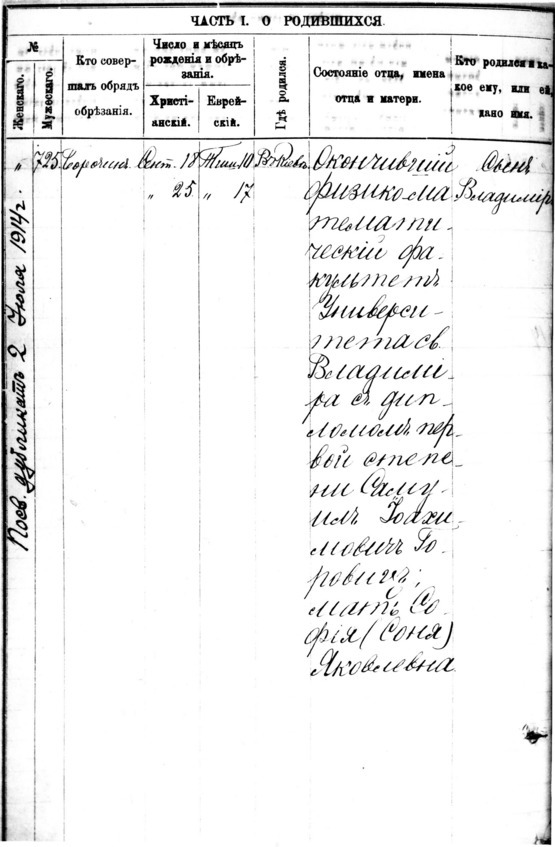 ЧАСТЬ I. О РОДИВШИХСЯ.
№
Женскаго.
Мужескаго.
Кто совер-
шалъ обрядъ
обрѣзанія.
Число и мѣсяцъ
рожденія и обрѣ-
занія.
Христі-
анскій.
Еврей-
скій.
Гдѣ родился.
Состояніе отца, имена
отца и матери.
Кто родился и ка-
кое ему, или ей,
дано имя.
„ 725 Сорочкинъ Сент. 18 Тиш. 10 В Кіевѣ Окончившій Сынъ
„ 25 „ 17 физико-ма Владиміръ
темати-
ческій фа-
культетъ
Универси-
тета св.
Владимі-
ра съ дип-
ломомъ пер-
вой степе-
ни Саму-
илъ Іоахи-
мовичъ Го-
ровичъ;
мать Со-
фія (Соня)
Яковлевна
Посв. дубликатъ 2 Іюля 1914 г.